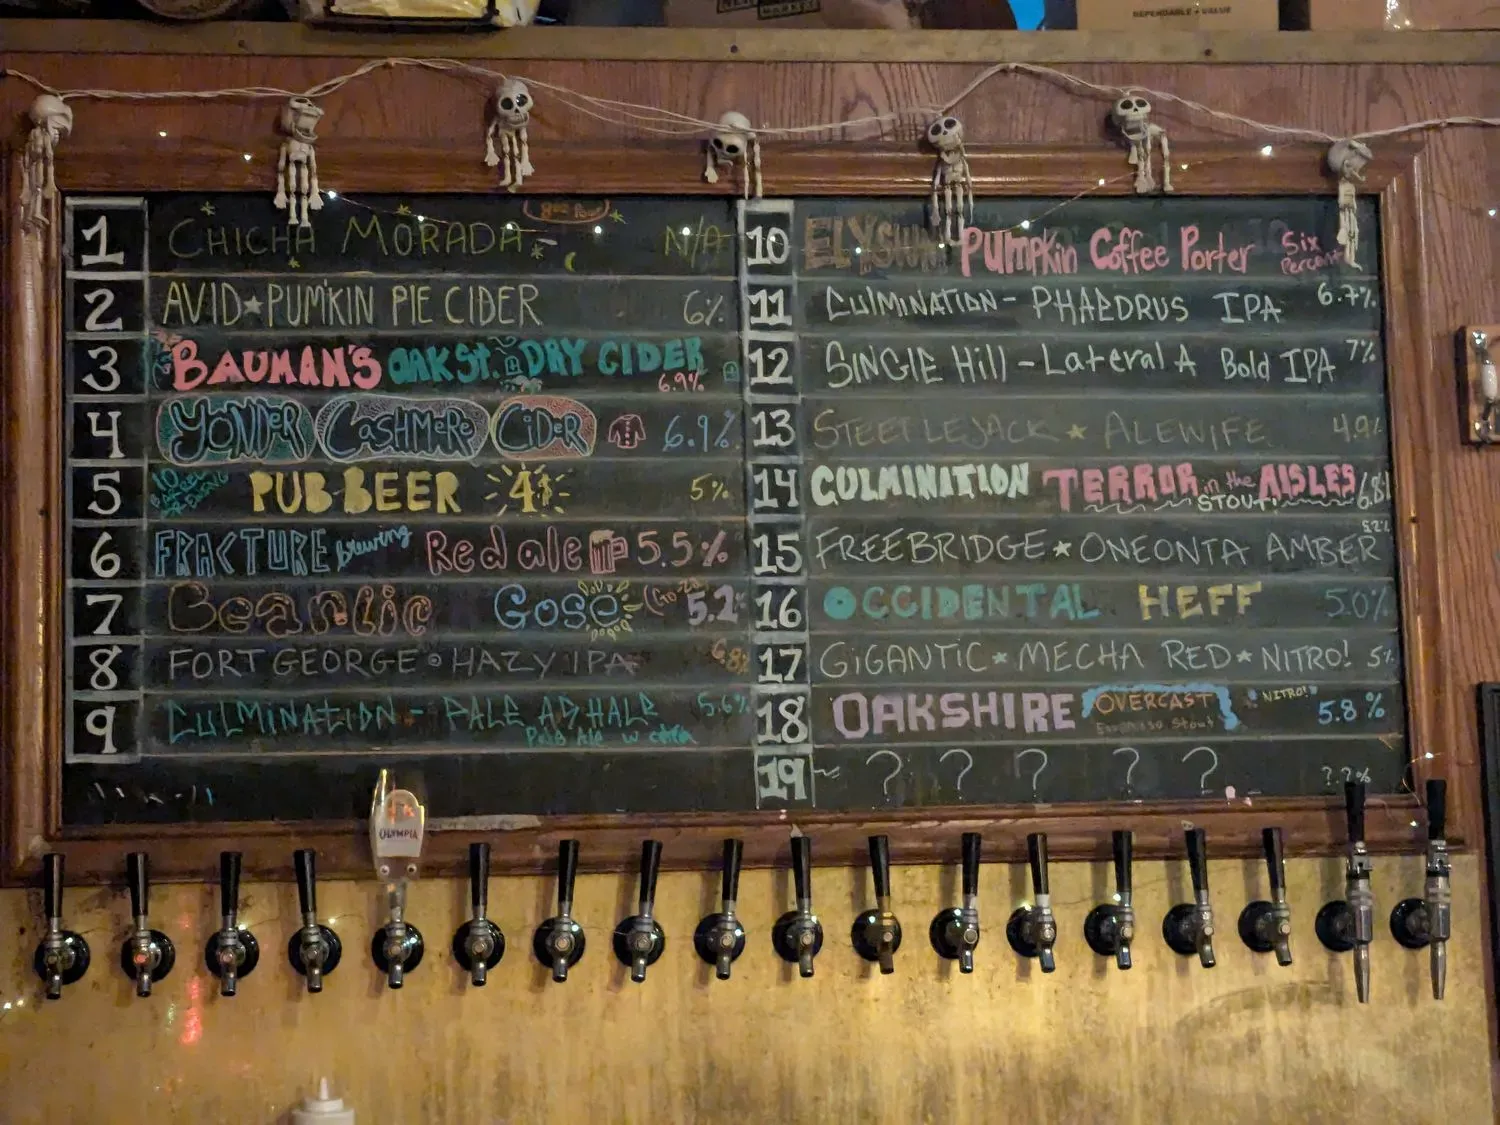 DEPENDABLE • VALUE
MARKET
1 CHICHA MORADA N/A
8oz Pour
2 AVID★PUMKIN PIE CIDER 6%
3 BAUMAN'S OAK St. DRY CIDER 6.9%
4 YONDER CASHMERE CIDER 6.9%
5 PUB BEER 4$ 5%
6 FRACTURE brewing Red ale 5.5%
7 Bearlic Gose 5.2%
8 FORT GEORGE • HAZY IPA 6.8%
9 CULMINATION - PALE ADHALE 5.6%
Pale Ale w
10 ELYSIAN Pumpkin Coffee Porter Six Percent
11 CULMINATION - PHAEDRUS IPA 6.7%
12 SINGLE Hill - Lateral A Bold IPA 7%
13 STEETLEJACK ★ ALEWIFE 4.9%
14 CULMINATION TERROR in the AISLES 6.8%
STOUT!
15 FREEBRIDGE ★ ONEONTA AMBER 5.2%
16 OCCIDENTAL HEFF 5.0%
17 GIGANTIC ★ MECHA RED ★ NITRO! 5%
18 OAKSHIRE OVERCAST NITRO! 5.8%
Espresso Stout
19 ~ ? ? ? ? ? ?.?%
OLYMPIA